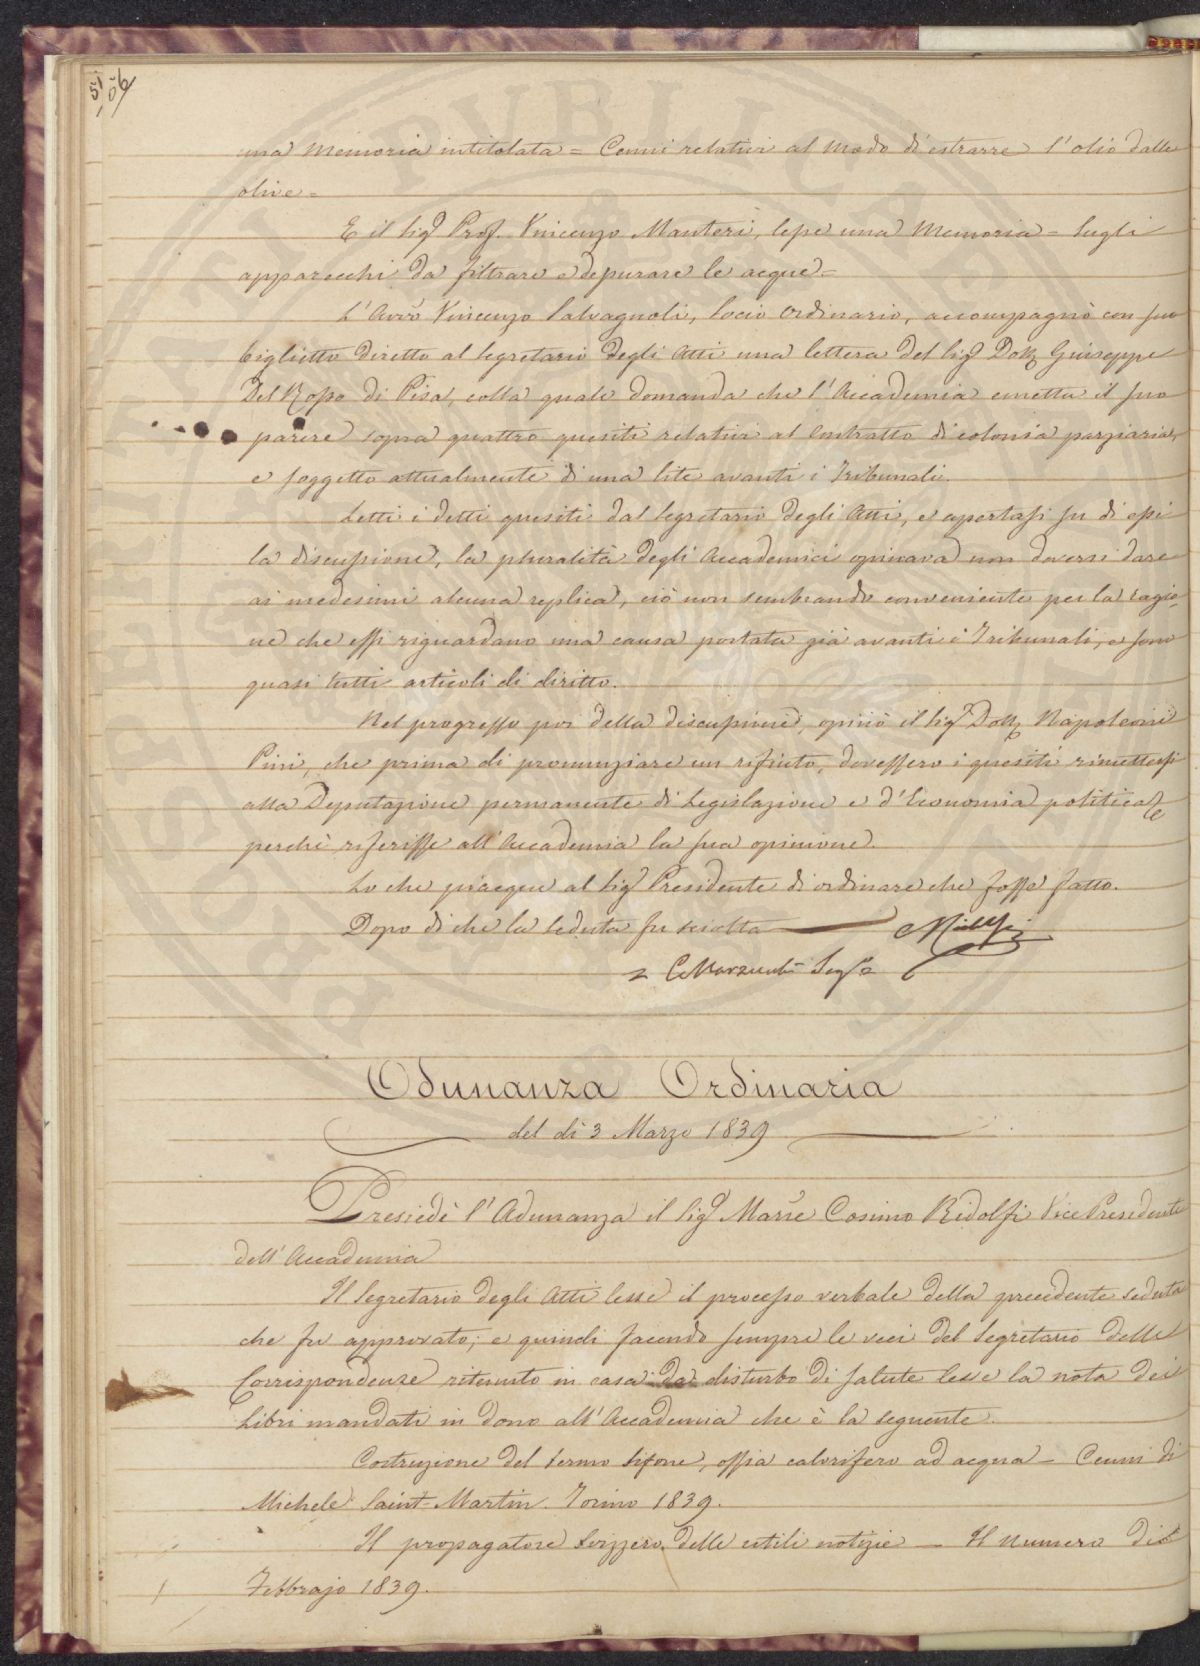 51/56
una Memoria intitolata = Cenni relativi al modo di estrarre l'olio dalle
olive =
E il Sigr Prof. Vincenzo Manteri, lesse una Memoria = Sugli
apparecchi da filtrare e depurare le acque =
L'Avvo Vincenzo Salvagnoli, Socio Ordinario, accompagnò con suo
biglietto diretto al Segretario degli Atti una lettera del Sigr Dottr Giuseppe
Del Rosso di Pisa, colla quale domanda che l'Accademia emetta il suo
parere sopra quattro quesiti relativi al Contratto di colonia parziaria,
e soggetto attualmente di una lite avanti i Tribunali.
Letti i detti quesiti dal Segretario degli Atti, e apertasi su di essi
la discussione, la pluralità degli Accademici opinava non doversi dare
ai medesimi alcuna replica, ciò non sembrando conveniente per la ragio-
ne che essi riguardano una causa portata già avanti i Tribunali, e sono
quasi tutti articoli di diritto.
Nel progresso poi della discussione, opinò il Sigr Dottr Napoleone
Pini, che prima di pronunziare un rifiuto, dovessero i quesiti rimettersi
alla Deputazione permanente di Legislazione e d'Economia politica
perchè riferisse all'Accademia la sua opinione.
Lo che piacque al Sigr Presidente di ordinare che fosse fatto.
Dopo di che la Seduta fu sciolta
Adunanza Ordinaria
del dì 3 Marzo 1839
Presiedè l'Adunanza il Sigr Marse Cosimo Ridolfi Vice Presidente
dell'Accademia
Il Segretario degli Atti lesse il processo verbale della precedente seduta
che fu approvato; e quindi facendo sempre le veci del Segretario delle
Corrispondenze ritenuto in casa da disturbo di salute lesse la nota dei
Libri mandati in dono all'Accademia che è la seguente.
Costruzione del termo sifone, ossia calorifero ad acqua - Cenni di
Michele Saint-Martin Torino 1839.
Il propagatore Svizzero delle utili notizie — Il numero di
Febbrajo 1839.